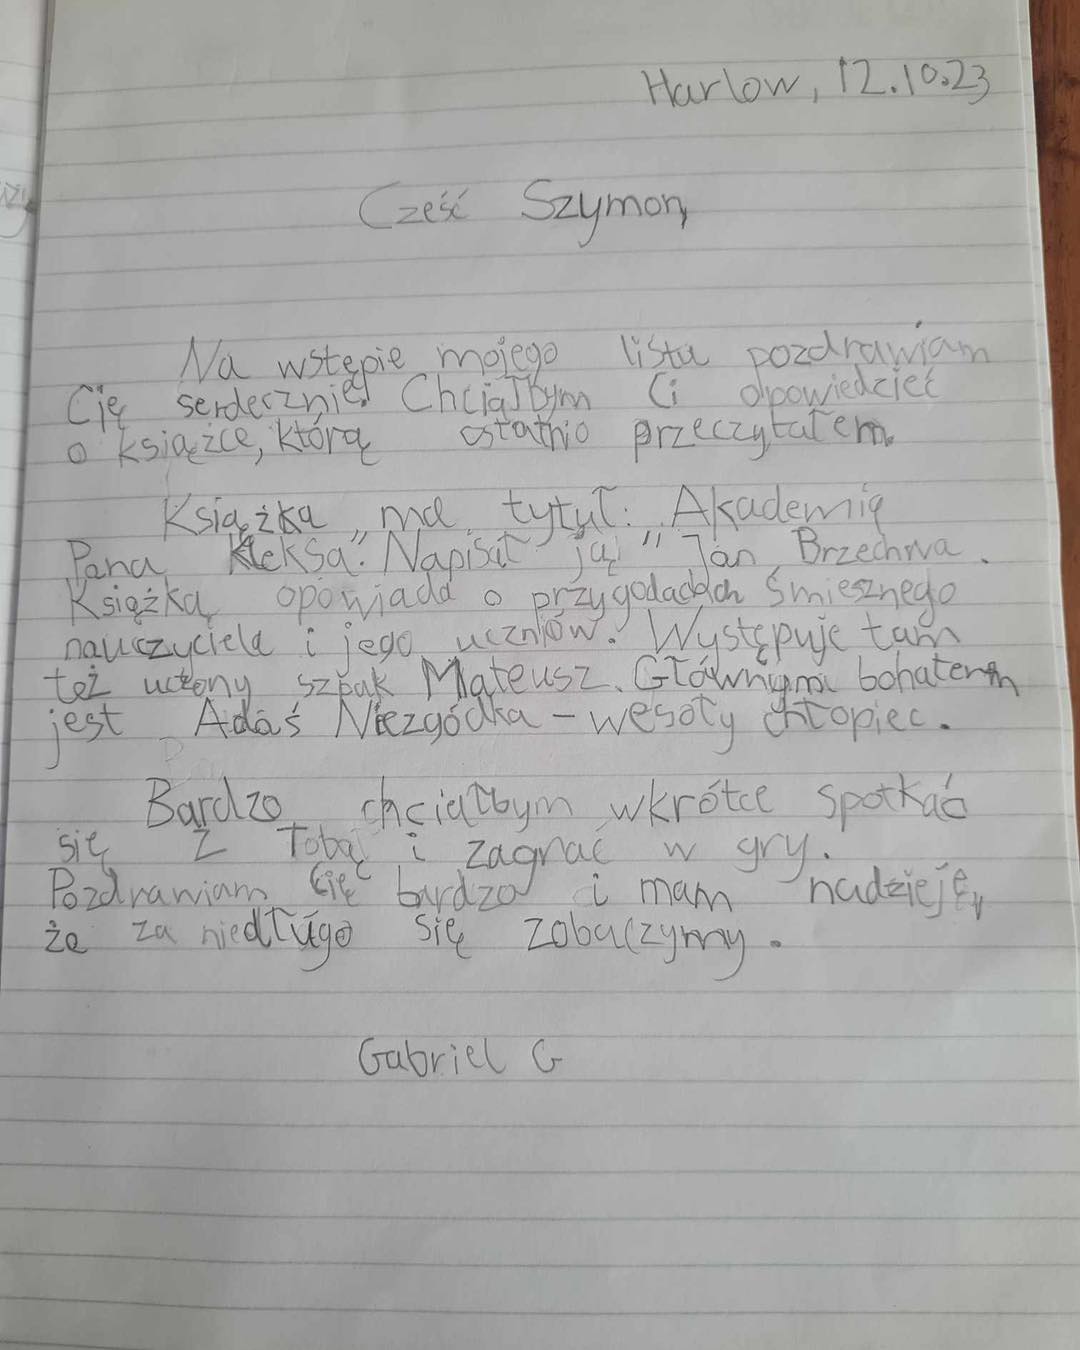 Harlow, 12.10.23
Cześć Szymon,
Na wstępie mojego listu pozdrawiam
Cię serdecznie! Chciałbym Ci opowiedzieć
o książce, którą ostatnio przeczytałem.
Książka ma tytuł: „Akademia
Pana Kleksa”. Napisał ją Jan Brzechwa.
Książka opowiada o przygodach śmiesznego
nauczyciela i jego uczniów. Występuje tam
też uczony szpak Mateusz. Głównym bohaterem
jest Adaś Niezgódka – wesoły chłopiec.
Bardzo chciałbym wkrótce spotkać
się z Tobą i zagrać w gry.
Pozdrawiam Cię bardzo i mam nadzieję,
że za niedługo się zobaczymy.
Gabriel G